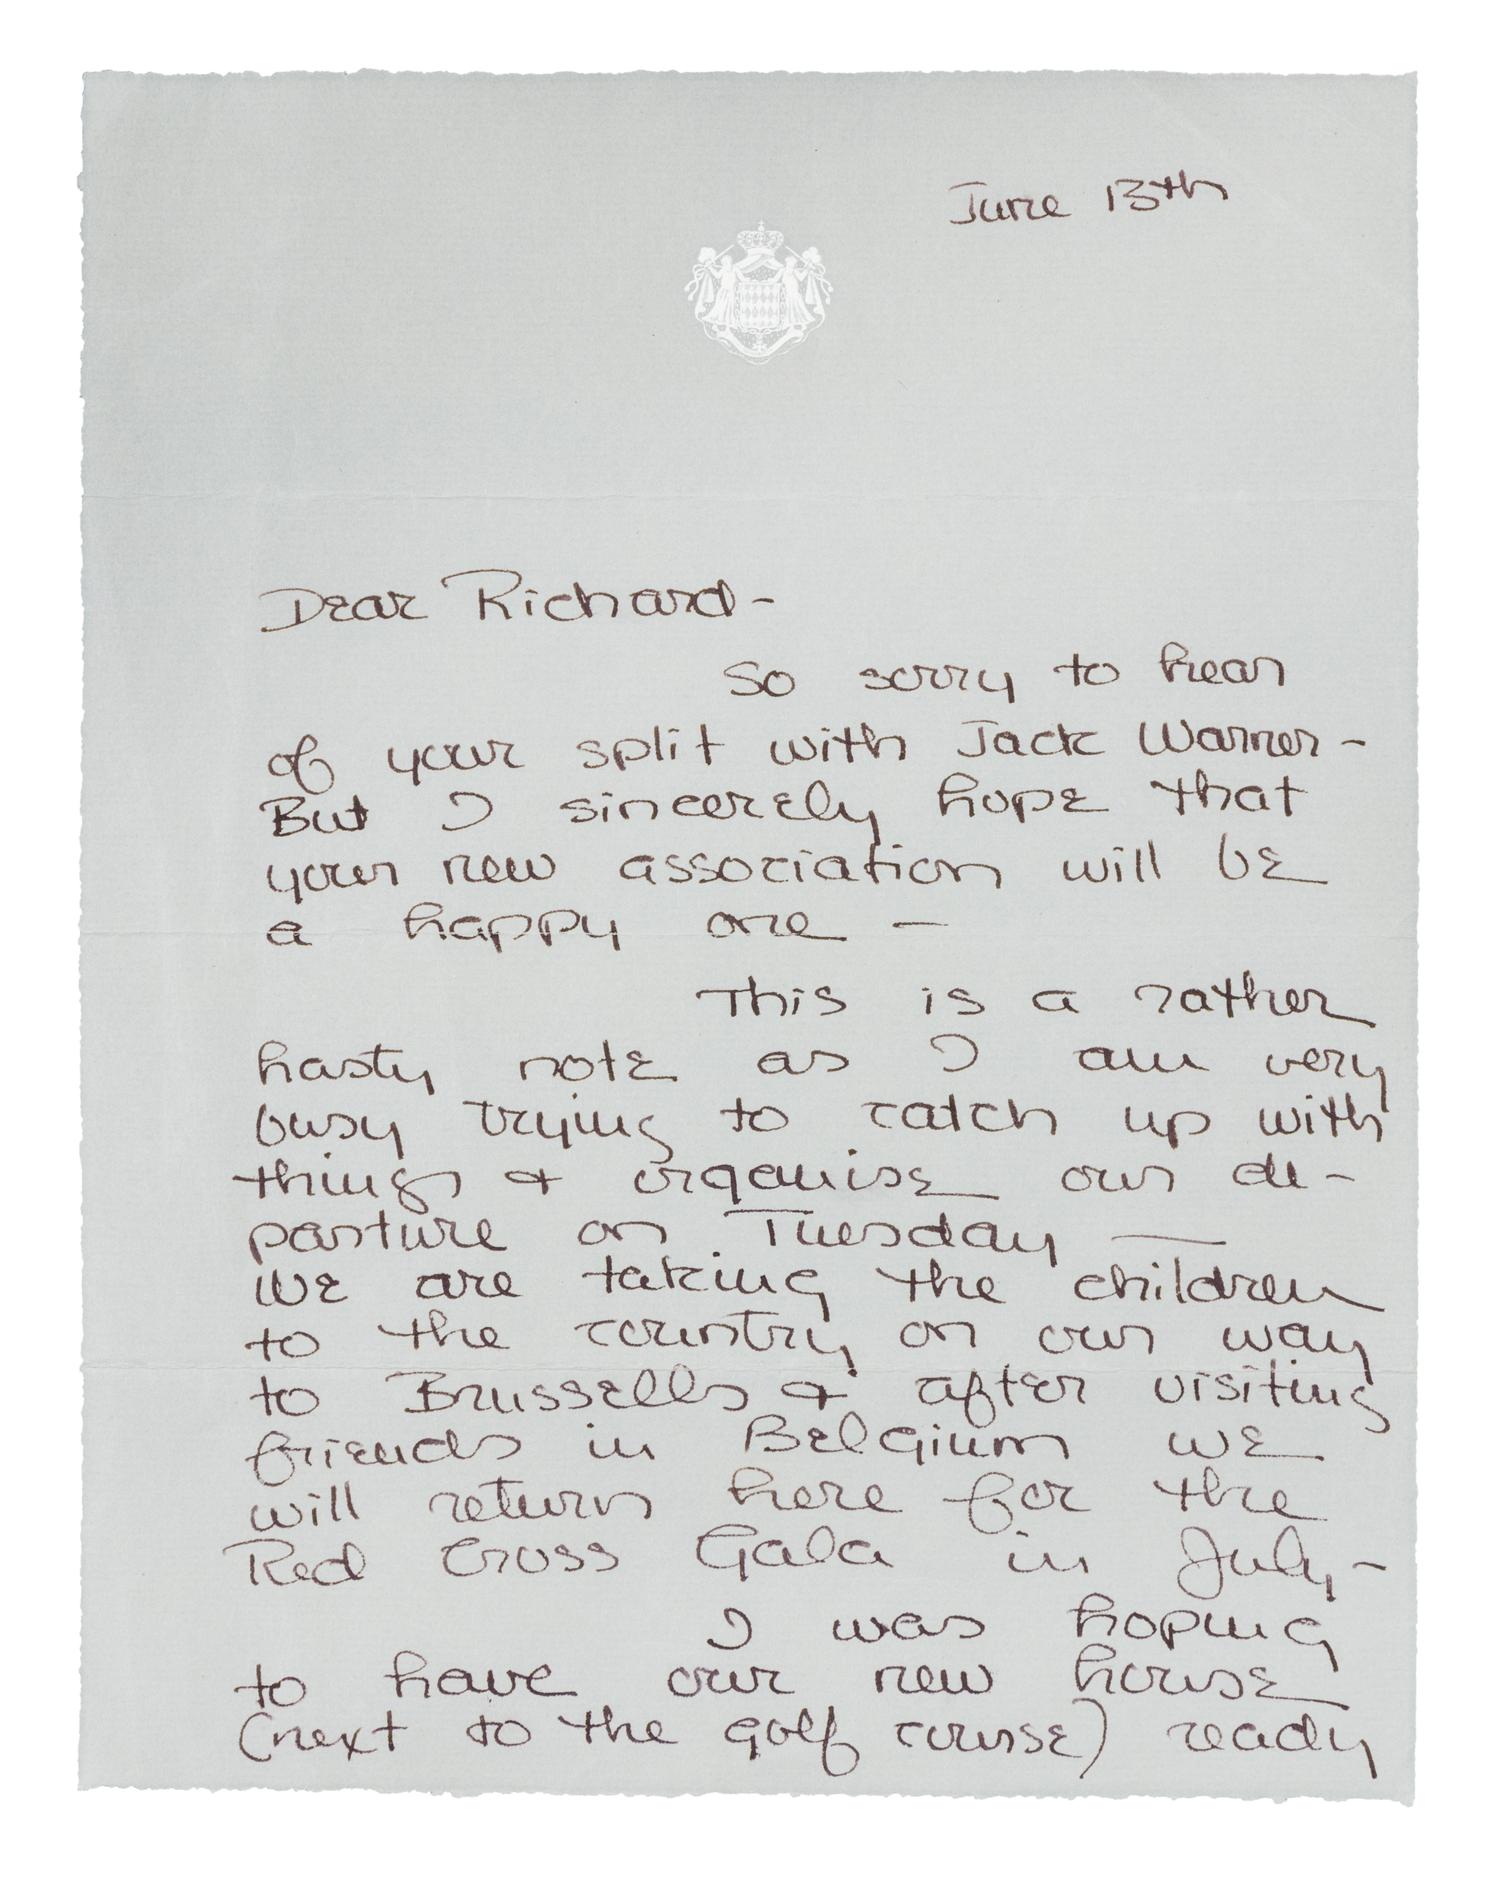 June 13th
Dear Richard-
So sorry to hear
of your split with Jack Warner -
But I sincerely hope that
your new association will be
a happy one -
This is a rather
hasty note as I am very
busy trying to catch up with
things & organise our de-
parture on Tuesday —
We are taking the children
to the country on our way
to Brussells & after visiting
friends in Belgium we
will return here for the
Red Cross Gala in July -
I was hoping
to have our new house
(next to the golf course) ready